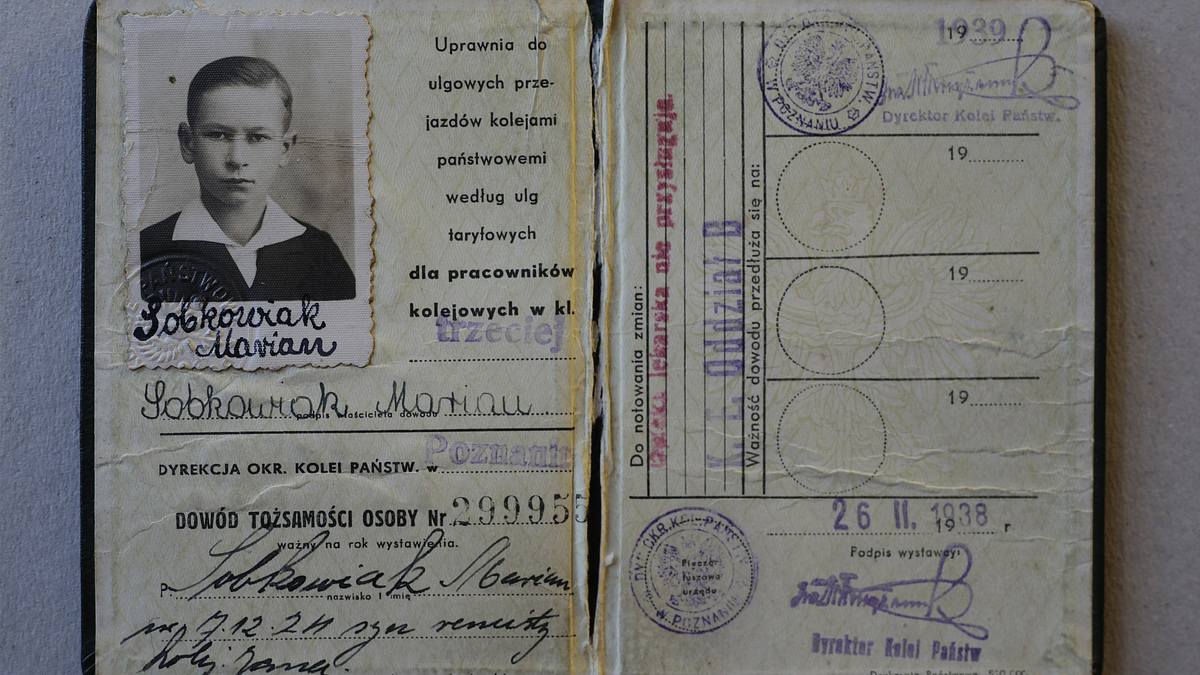 Sobkowiak
Marian
Uprawnia do
ulgowych prze-
jazdów kolejami
państwowemi
według ulg
taryfowych
dla pracowników
kolejowych w kl.
trzeciej
Sobkowiak Marian
podpis właściciela dowodu
DYREKCJA OKR. KOLEI PAŃSTW. w Poznaniu
DOWÓD TOŻSAMOŚCI OSOBY Nr 299955
ważny na rok wystawienia.
P. Sobkowiak Marian
nazwisko i imię
ur 7.12.24 syn
kolej. Jana.
Do notowania zmian:
lekarska nie przysługuje.
K. E. Oddział B
Ważność dowodu przedłuża się na:
W POZNANIU
1939
19
Dyrektor Kolei Państw.
19
19
19
26 II. 1938
19 r
DYR. OKR. KOL. PAŃSTW.
W POZNANIU
urzędu
Podpis wystawcy:
Dyrektor Kolei Państw